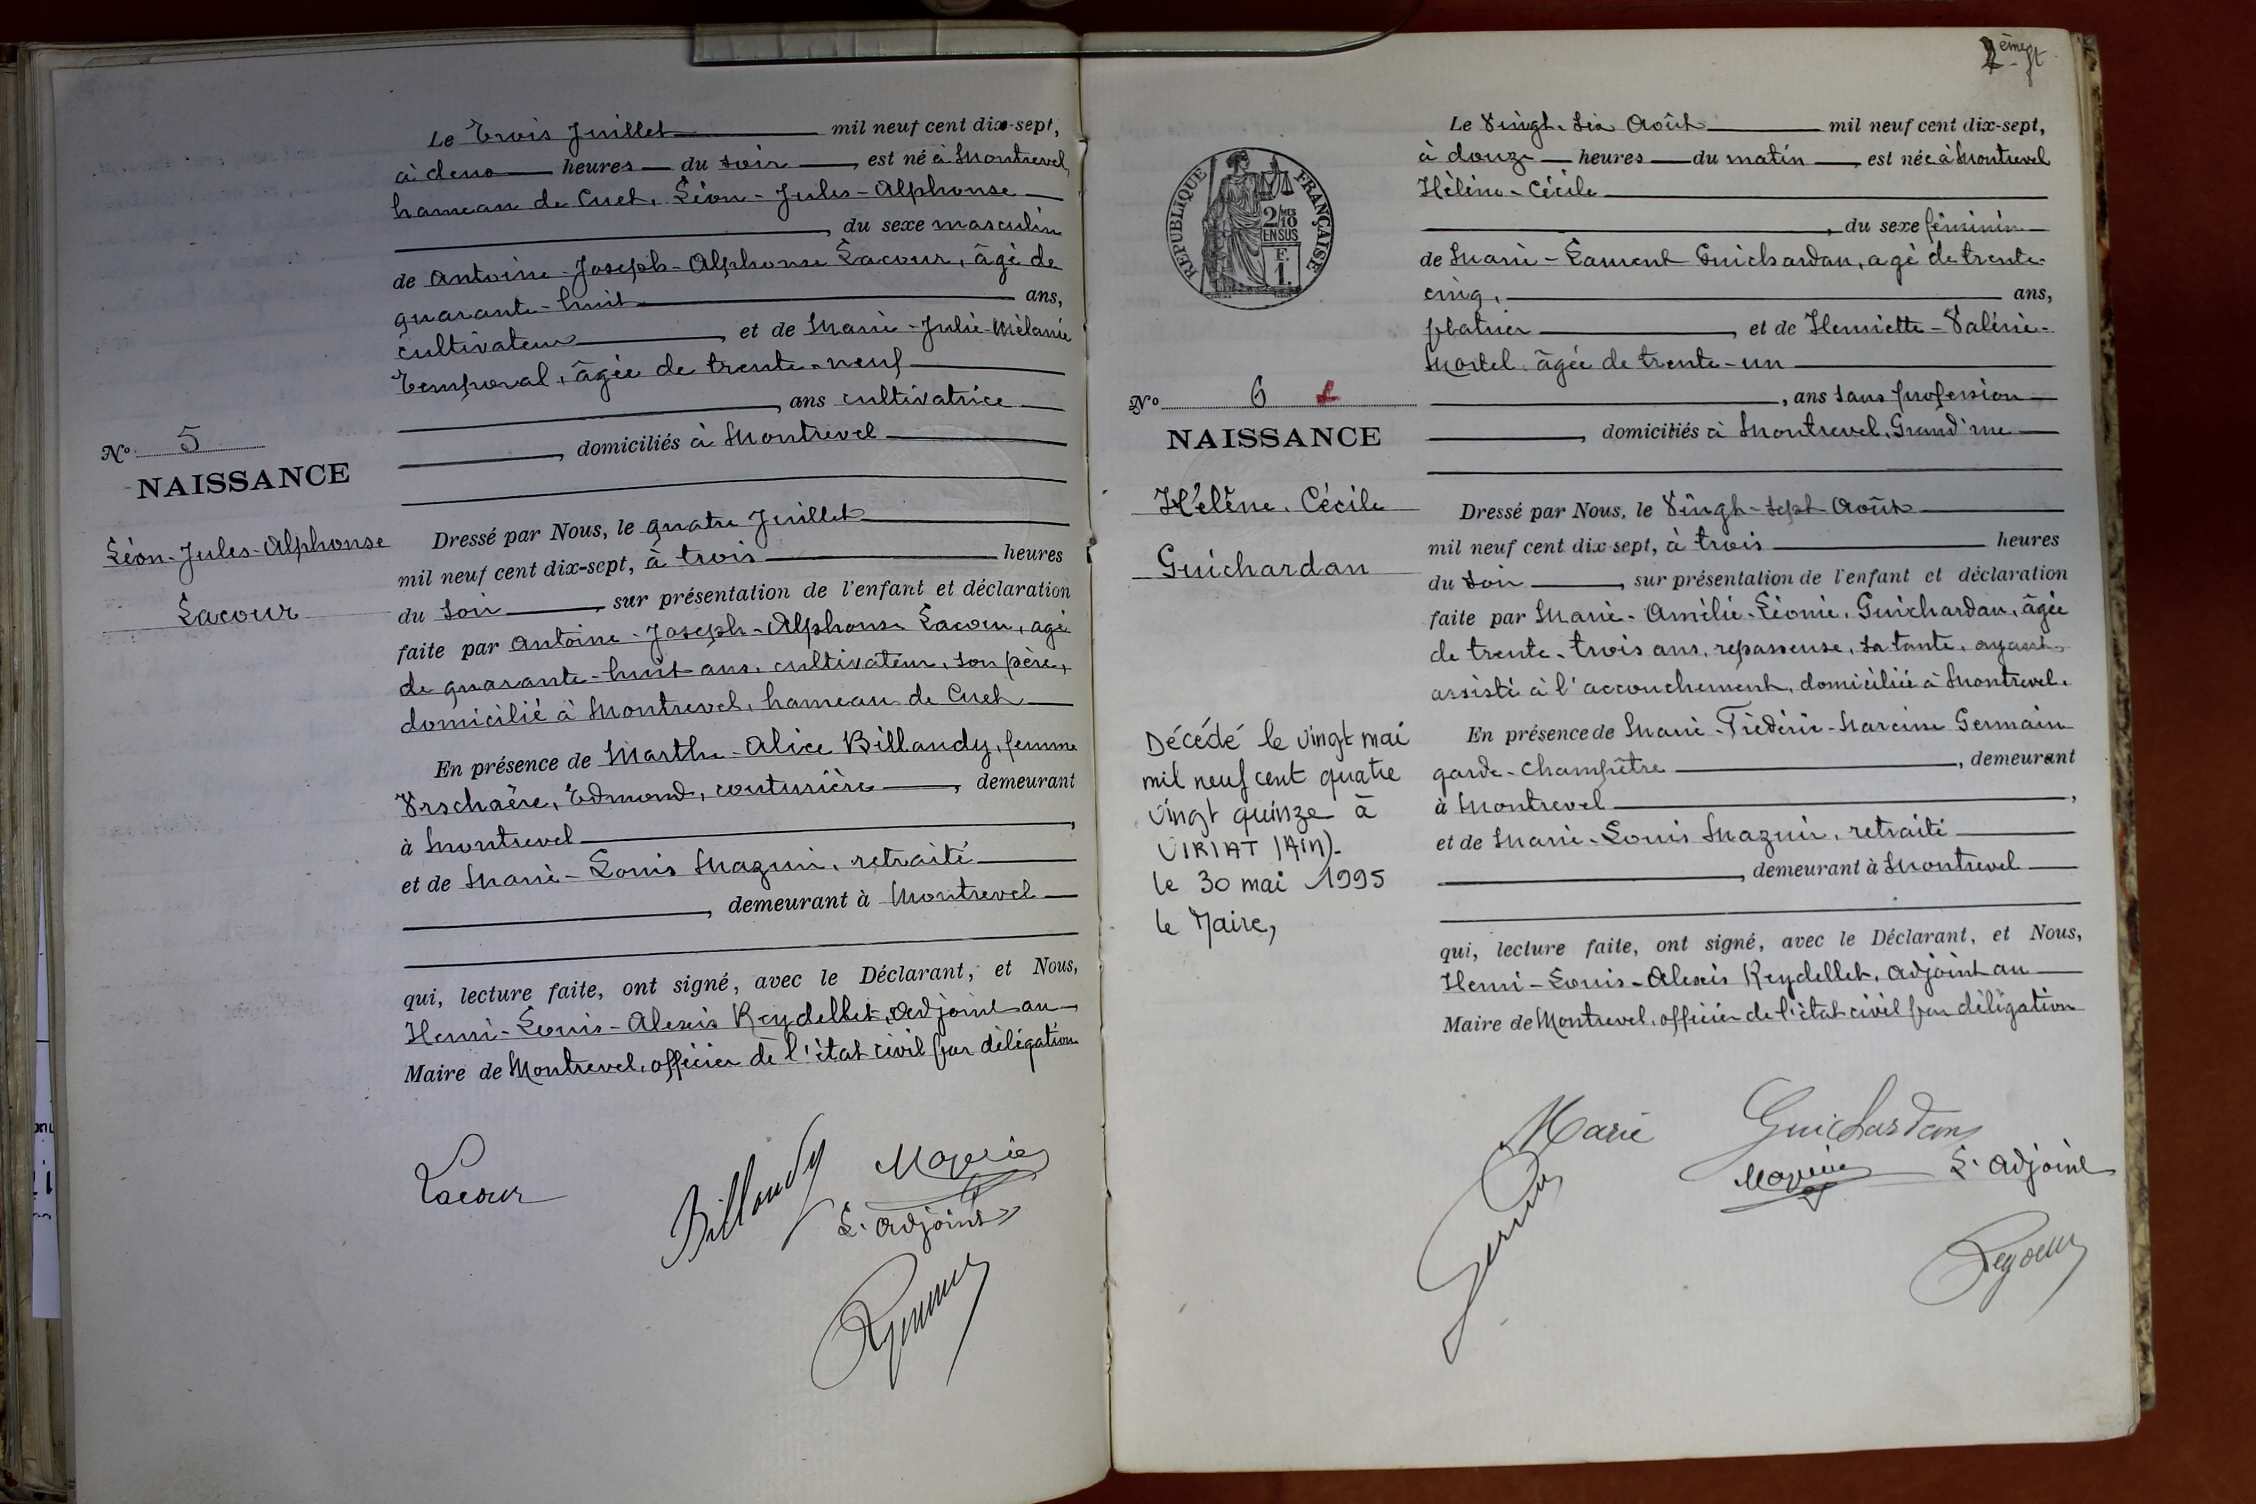 Le Trois Juillet mil neuf cent dix-sept,
à deux heures du soir, est né à Montrevel,
hameau de Cuet, Léon-Jules-Alphonse
, du sexe masculin
de Antoine-Joseph-Alphonse Lacour, âgé de
quarante-huit ans,
cultivateur, et de Marie-Julie-Mélanie
Temporal, âgée de trente-neuf
, ans cultivatrice
, domiciliés à Montrevel
No 5
NAISSANCE
Léon-Jules-Alphonse
Lacour
Dressé par Nous, le quatre Juillet
mil neuf cent dix-sept, à trois heures
du soir, sur présentation de l'enfant et déclaration
faite par Antoine-Joseph-Alphonse Lacour, agé
de quarante-huit ans, cultivateur, son père,
domicilié à Montrevel, hameau de Cuet
En présence de Marthe-Alice Billaudy, femme
Vrschaère, Edmond, couturière, demeurant
à Montrevel,
et de Marie-Louis Mazuir, retraité
, demeurant à Montrevel
qui, lecture faite, ont signé, avec le Déclarant, et Nous,
Henri-Louis-Alexis Reydellet, Adjoint au
Maire de Montrevel, officier de l'état civil par délégation
Lacour
Billaudy
L'Adjoint
2ème ft
RÉPUBLIQUE FRANÇAISE
2/10 MES
EN SUS
F.
1.
Le Vingt-six Août mil neuf cent dix-sept,
à douze heures du matin, est née à Montrevel
Hélène-Cécile
, du sexe féminin
de Marie-Laurent Guichardan, agé de trente-
cinq, ans,
platrier, et de Henriette-Valérie-
Mortel, âgée de trente-un
, ans sans profession
, domiciliés à Montrevel, Grand'rue
No 6
NAISSANCE
Hélène-Cécile
Guichardan
Décédé le vingt mai
mil neuf cent quatre
vingt quinze à
VIRIAT (Ain).
le 30 mai 1995
le Maire,
Dressé par Nous, le Vingt-sept Août
mil neuf cent dix-sept, à trois heures
du soir, sur présentation de l'enfant et déclaration
faite par Marie-Amélie-Léonie, Guichardan, âgée
de trente-trois ans, repasseuse, sa tante, ayant
assisté à l'accouchement, domiciliée à Montrevel.
En présence de Marie-Frédéric-Narcisse Germain
garde-champêtre, demeurant
à Montrevel,
et de Marie-Louis Mazuir, retraité
, demeurant à Montrevel
qui, lecture faite, ont signé, avec le Déclarant, et Nous,
Henri-Louis-Alexis Reydellet, Adjoint au
Maire de Montrevel, officier de l'état civil par délégation
Marie Guichardan
L'Adjoint